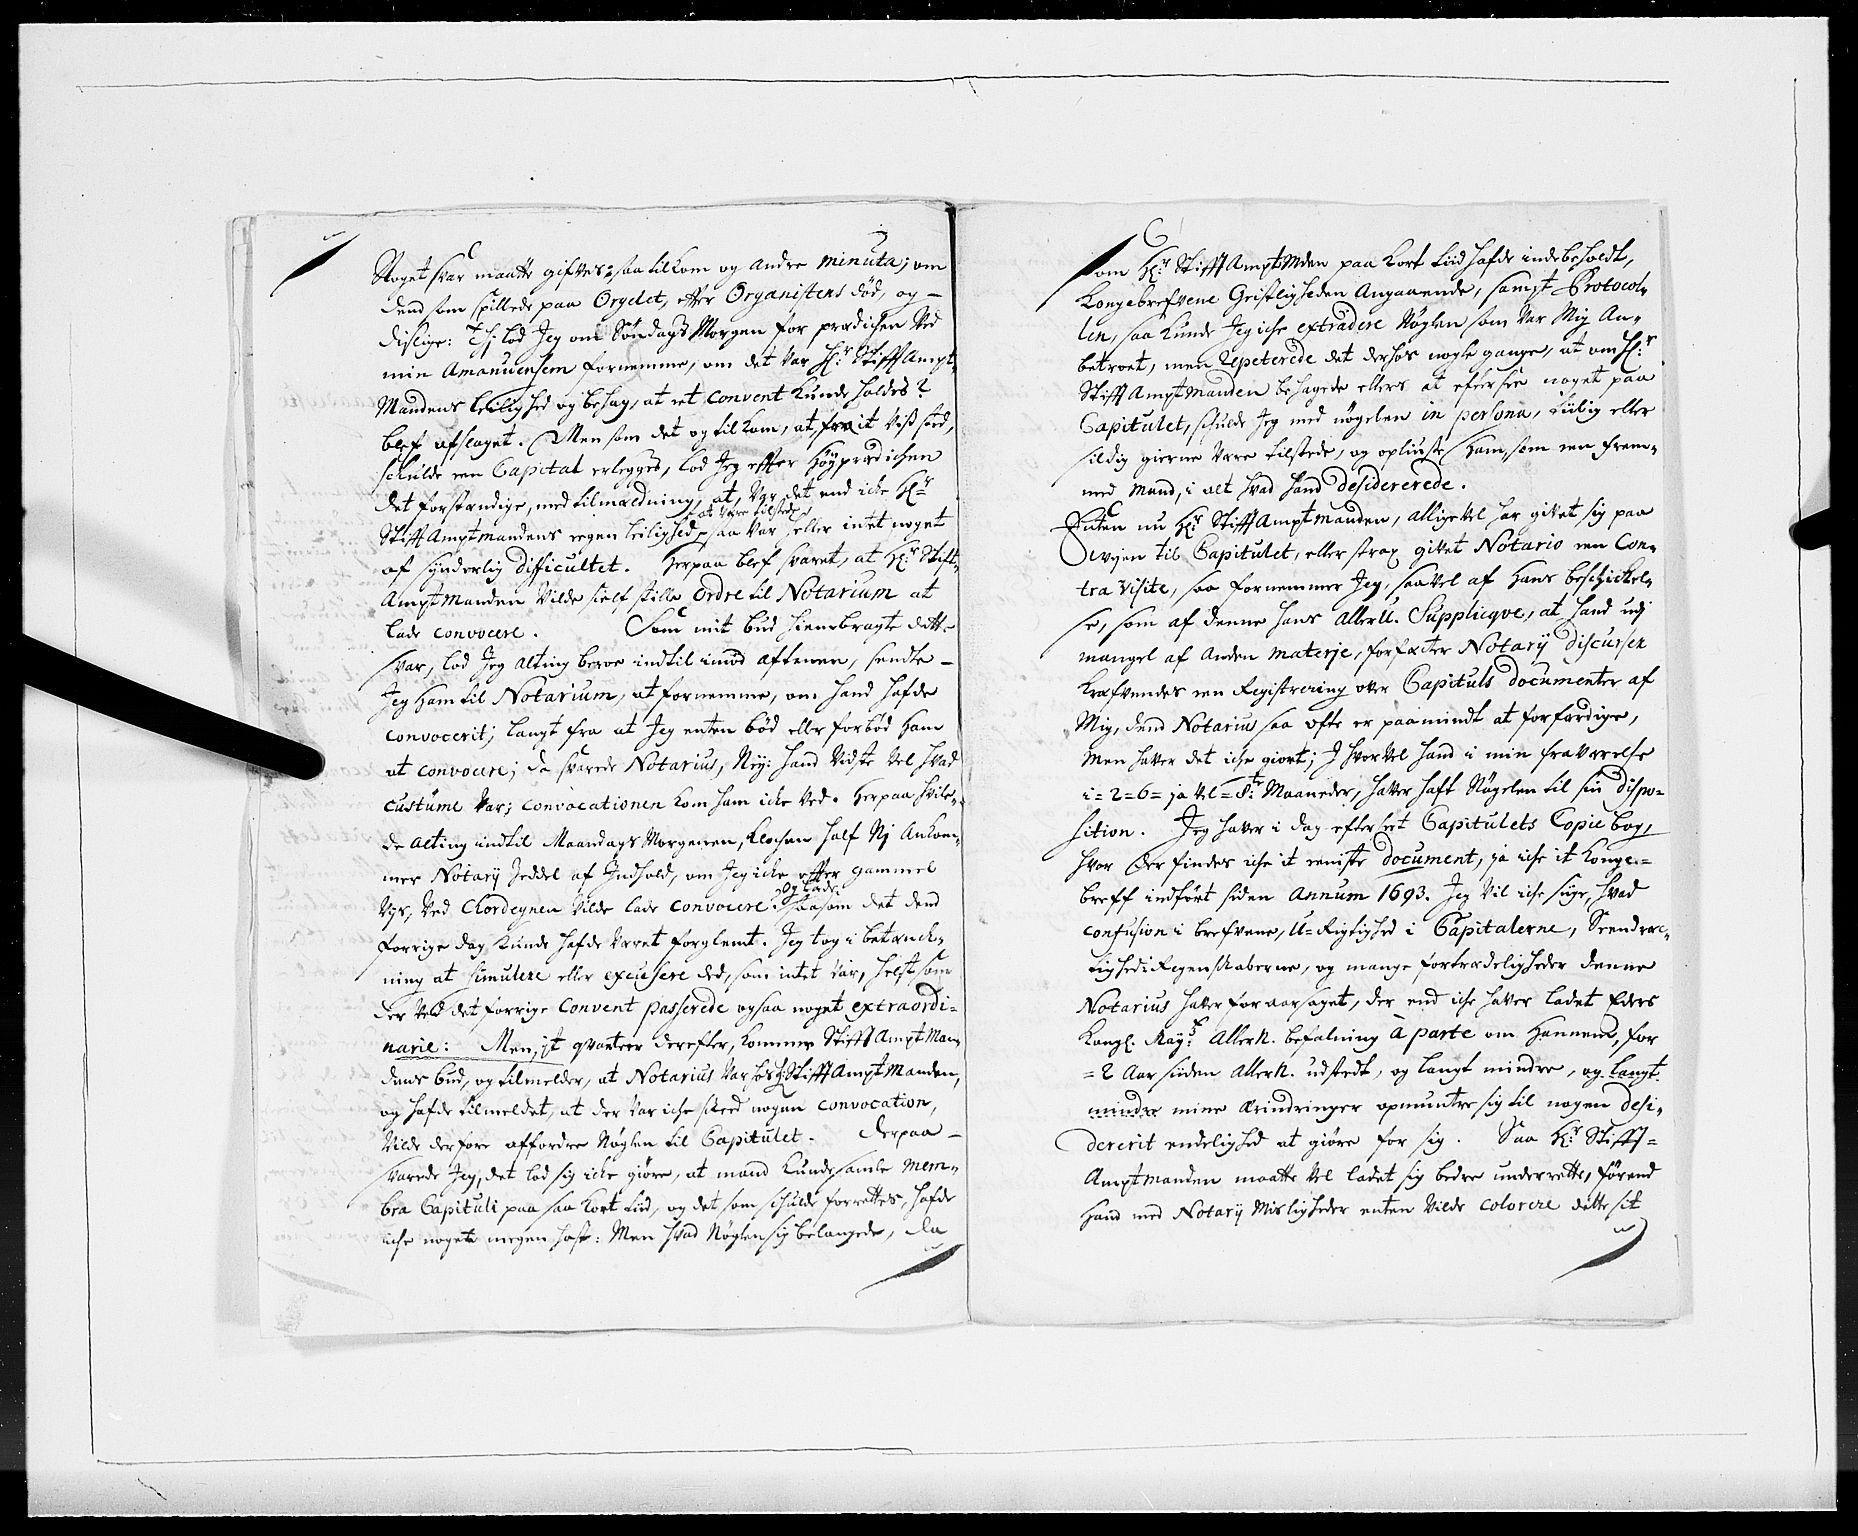 Noget svar maatte gifves: saa tilkom og andre minuta; om
dend som spillede paa Orgelet, efter Organistens död, og
deslige: Thj lod Jeg om Söndags Morgen för prædichen Ved
min Amanuensem fornemme, om det var Hr: Stifft Ampt
Mandens leilighed og behag, at et Convent kunde holdes?
blef afslaget. Men som det og tilkom, at, fra it vist sted,
schulde een Capital erlegges, lod Jeg efter Høyprædichen
det forstændige, med tilmældning, at, var det end icke Hr:
Stifft Amptmandens egen leilighed at være tilstede, saa var eller intet noget
af synderlig difficultet. Herpaa blef svaret, at Hr: Stift-
Amptmanden Vilde sielf stille Ordre til Notarium at
lade convocere. Som mit bud hiembragte dette
svar, lod Jeg alting beroe indtil imod aftenen, sendte
Jeg ham til Notarium, at fornemme, om hand hafde
convocerit; langt fra at Jeg enten bød eller forbød ham
at convocere; da svarede Notarius, Ney: hand vidste vel hvad
custüme var; convocationen kom ham icke ved. Herpaa hvile-
de alting indtil Maandags Morgenen, Klochen half Nj ankom-
mer Notarij Zeddel af Indhold, om Jeg icke efter gammel
Vjs, Ved Chordegnen vilde lade convocere og lade saasom det dend
forrige dag kunde hafde været forglemt. Jeg tog i betænck-
ning at simulere eller excusere ded, som intet var, helst som
der Ved det forrige Convent passerede ogsaa noget extraordi-
narie: Men, it qvarteer derefter, kommer Stifft Ampt Man-
dens bud, og tilmelder, at Notarius var hos Hr Stifft Ampt Manden,
og hafde tilmeldet, at der var iche skeed nogen convocation,
Vilde derfore affordre Nøglen til Capitulet. Derpaa
svarede Jeg, det lod sig icke giøre, at mand kunde samle Mem-
bra Capituli paa saa kort tiid, og det som schulde forrettes, hafde
iche noget megen hast: Men hvad Nøglen sig belangede, da
som Hr: Stifft Ampt Mden paa kort tiid hafde indebeholdt,
Kongebrefvene Geistligheden Angaaende, sampt Protocol-
len, saa kunde Jeg iche extradere Nøglen som var Mig An-
betroet, men Repeterede det derhos nogle gange, at om Hr:
Stifft Amptmanden behagede ellers at efftersee noget paa
Capitulet, schulde Jeg med nøgelen in persona, tiilig eller
sildig gierne være tilstede, og opliuse Ham, som een frem-
med Mand, i alt hvad hand desidererede.
Enten nu Hr: Stifft Amptmanden, alligevel har givet sig paa
Vejen til Capitulet, eller strax givet Notario een Con-
tra Visite, saa fornemmer Jeg, saavel af hans beschickel-
se, som af denne hans Aller U. Supplicqve, at hand udj
mangel af Anden materje, forfæcter Notarij discurser
krefvendes een Registrering over Capituls documenter af
Mig, dend Notarius saa ofte er paamindt at forfærdige,
Men hafver det iche giort; J hvorvel hand i min fraværelse
i = 2 = 6 = ja vel = 8te Maaneder, hafver haft Nøgelen til sin dispo-
sition. Jeg hafver i dag effterseet Capitulets Copie bog,
hvor der findes iche it eeniste document, ja iche it Konge-
breff indført siden Annum 1693. Jeg vil iche sige, hvad
confusion i brefvene, U-Rigtighed i Capitalerne, Seendræc-
tighed i Regenskaberne, og mange fortrædeligheder denne
Notarius hafver foraarsaget, der end iche hafver ladet Eders
Kongl. Mays: Aller N. befalning à parte om hannem, for
= 2 Aar siden Aller N. udstedt, og langt mindre, og langt
mindre mine Erindringer opmuntre sig til nogen desi-
dererit endelighed at giøre for sig. Saa Hr: Stiffts-
Amptmanden maatte vel ladet sig bedre underrette, førend
Hand med Notarij Misligheder enten vilde colorere dette sit